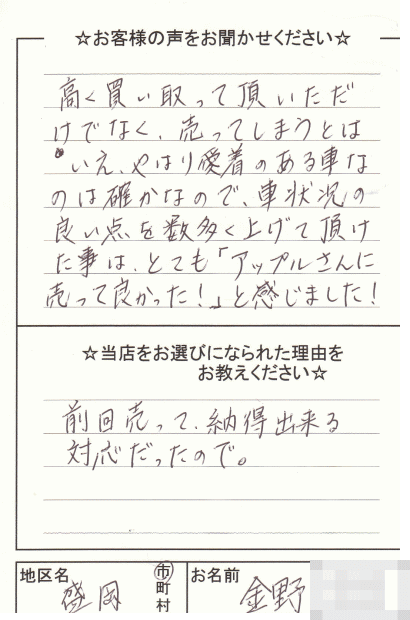 ☆お客様の声をお聞かせください☆
高く買い取って頂いただ
けでなく、売ってしまうとは
いえ、やはり愛着のある車な
のは確かなので、車状況の
良い点を数多く上げて頂け
た事は、とても「アップルさんに
売って良かった!」と感じました!
☆当店をお選びになられた理由を
お教えください☆
前回売って、納得出来る
対応だったので。
地区名 盛岡 市町村 お名前 金野